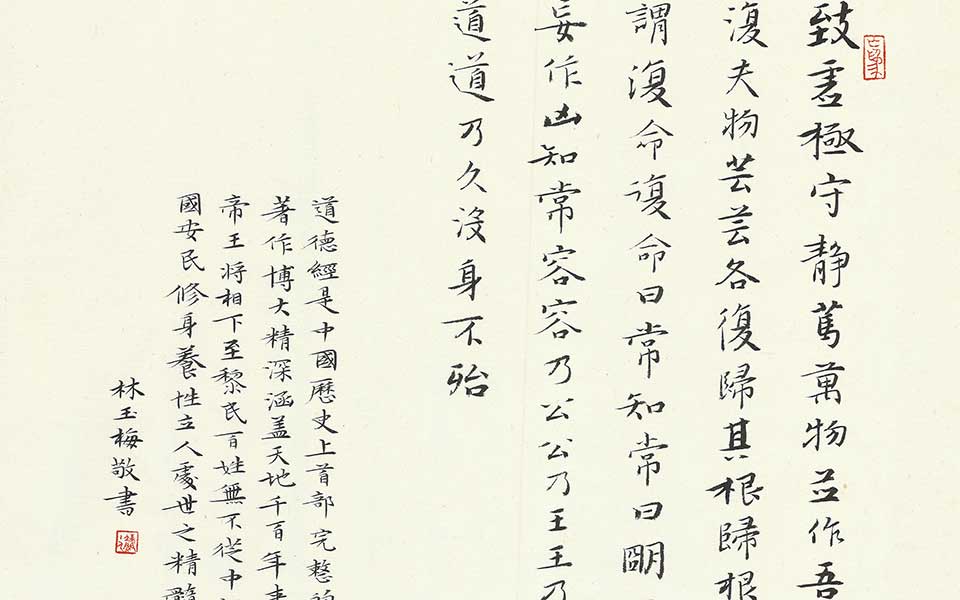 致虛極守靜篤萬物並作吾
復夫物芸芸各復歸其根歸根
謂復命復命曰常知常曰明
妄作凶知常容容乃公公乃王王乃
道道乃久沒身不殆
道德經是中國歷史上首部完整
著作博大精深涵盖天地千百年來
帝王将相下至黎民百姓無不從中
國安民修身養性立人處世之精髓
林玉梅敬書